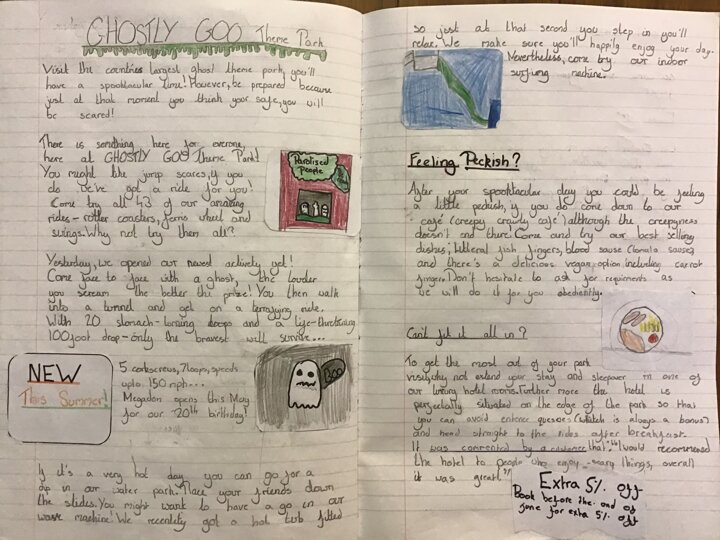 GHOSTLY GOO Theme Park
Visit the countries largest ghost theme park, you'll
have a spooktacular time! However, be prepared because
just at that moment you think your safe, you will
be scared!
There is something here for everone,
here at GHOSTLY GOO Theme Park!
You might like jump scares, if you
do we've got a ride for you!
Come try all 43 of our amazing
rides - roller coasters, ferris wheel and
swings. Why not try them all?
Paralised
People
Yesturday, we opened our newest activety yet!
Come face to face with a ghost, the louder
you scream the better the prize! You then walk
into a tunnel and get on a terrafying ride.
With 20 stomach-turning drops and a life-threatening
100 foot drop - only the bravest will survive...
NEW
This Summer!
5 corkscrews, 7 loops, speeds
upto 150 mph...
Megadon opens this May
for our 20th birthday!
Boo
If it's a very hot day you can go for a
dip in our water park. Race your friends down
the slides. You might want to have a go in our
wave machine! We recentely got a hot tub fitted
so just at that second you step in you'll
relax. We make sure you'll happily enjoy your day.
Nevertheless, come try our indoor
surfing machine.
Feeling Peckish?
After your spooktacular day you could be feeling
a little peckish, if you do come down to our
cafe (creepy crawly cafe) although the creepyness
doesn't end there! Come and try our best selling
dishes; litteral fish fingers, blood sause (tomato sause)
and there's a delicious vegan option including carrot
fingers. Don't hesitate to ask for requirments as
we will do it for you obediently.
Can't fit it all in?
To get the most out of your park
visit, why not extend your stay and sleepover in one of
our luxury hotel rooms. Further more the hotel is
perfectally situated on the edge of the park so that
you can avoid entence queues (which is always a bonus)
and head straight to the rides after breakfast.
It was commented by a customer that, "I would recommened
the hotel to people who enjoy scary things, overall
it was great!"
Extra 5% off
Book before the end of
june for extra 5% off